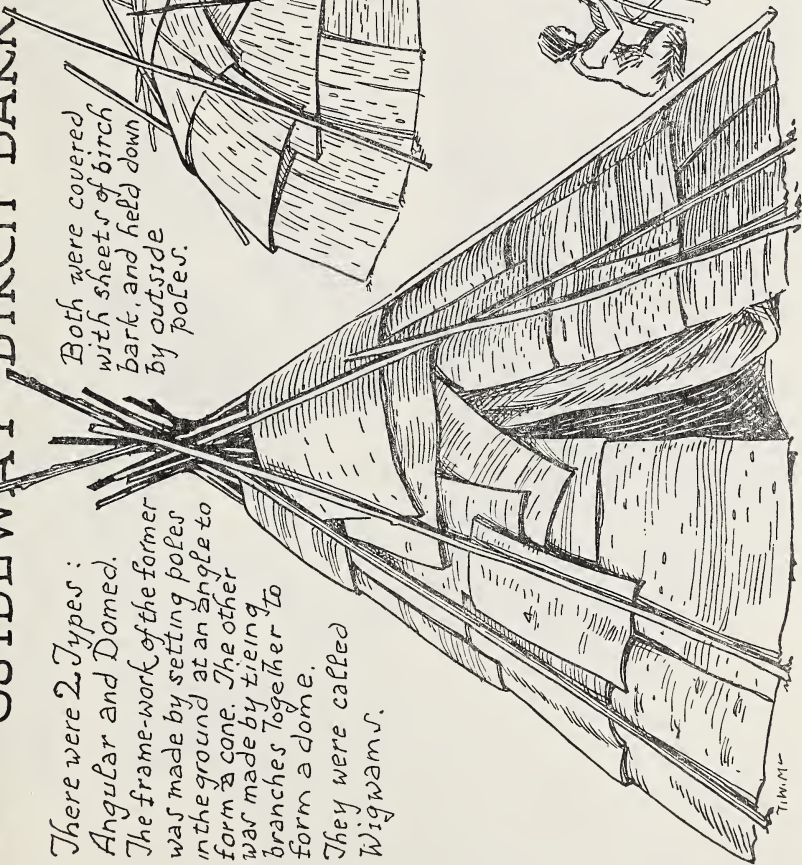 OJIBEWAY BIRCH BARK
There were 2 Types:
Angular and Domed.
The frame-work of the former
was made by setting poles
in the ground at an angle to
form a cone. The other
was made by tieing
branches Together to
form a dome.
They were called
Wigwams.
Both were covered
with sheets of birch
bark, and held down
by outside
poles.